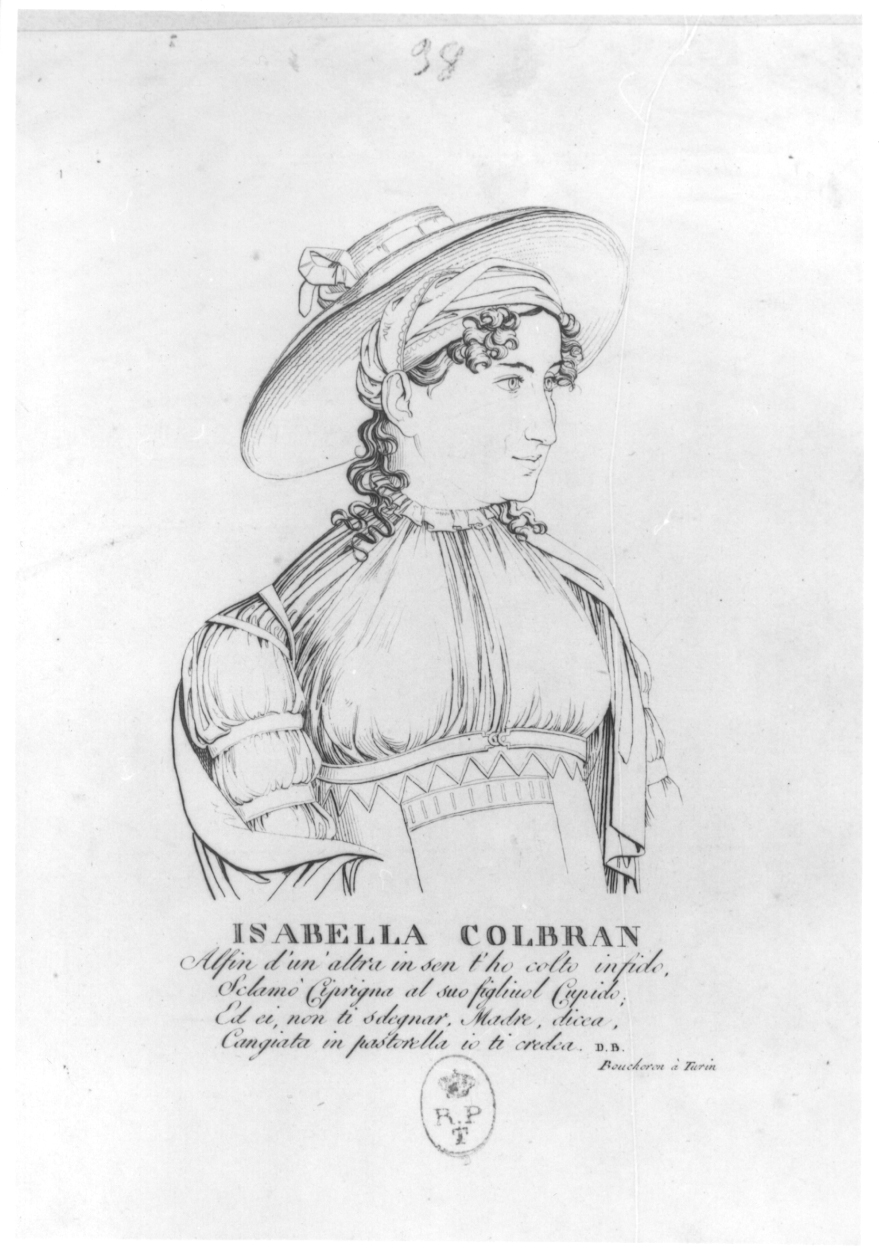 38
ISABELLA COLBRAN
Alfin d'un' altra in sen t'ho colto infido,
Sclamò Ciprigna al suo figliuol Cupido;
Ed ei, non ti sdegnar, Madre, dicea,
Cangiata in pastorella io ti credea. D.B.
Boucheron à Turin
R.P
T